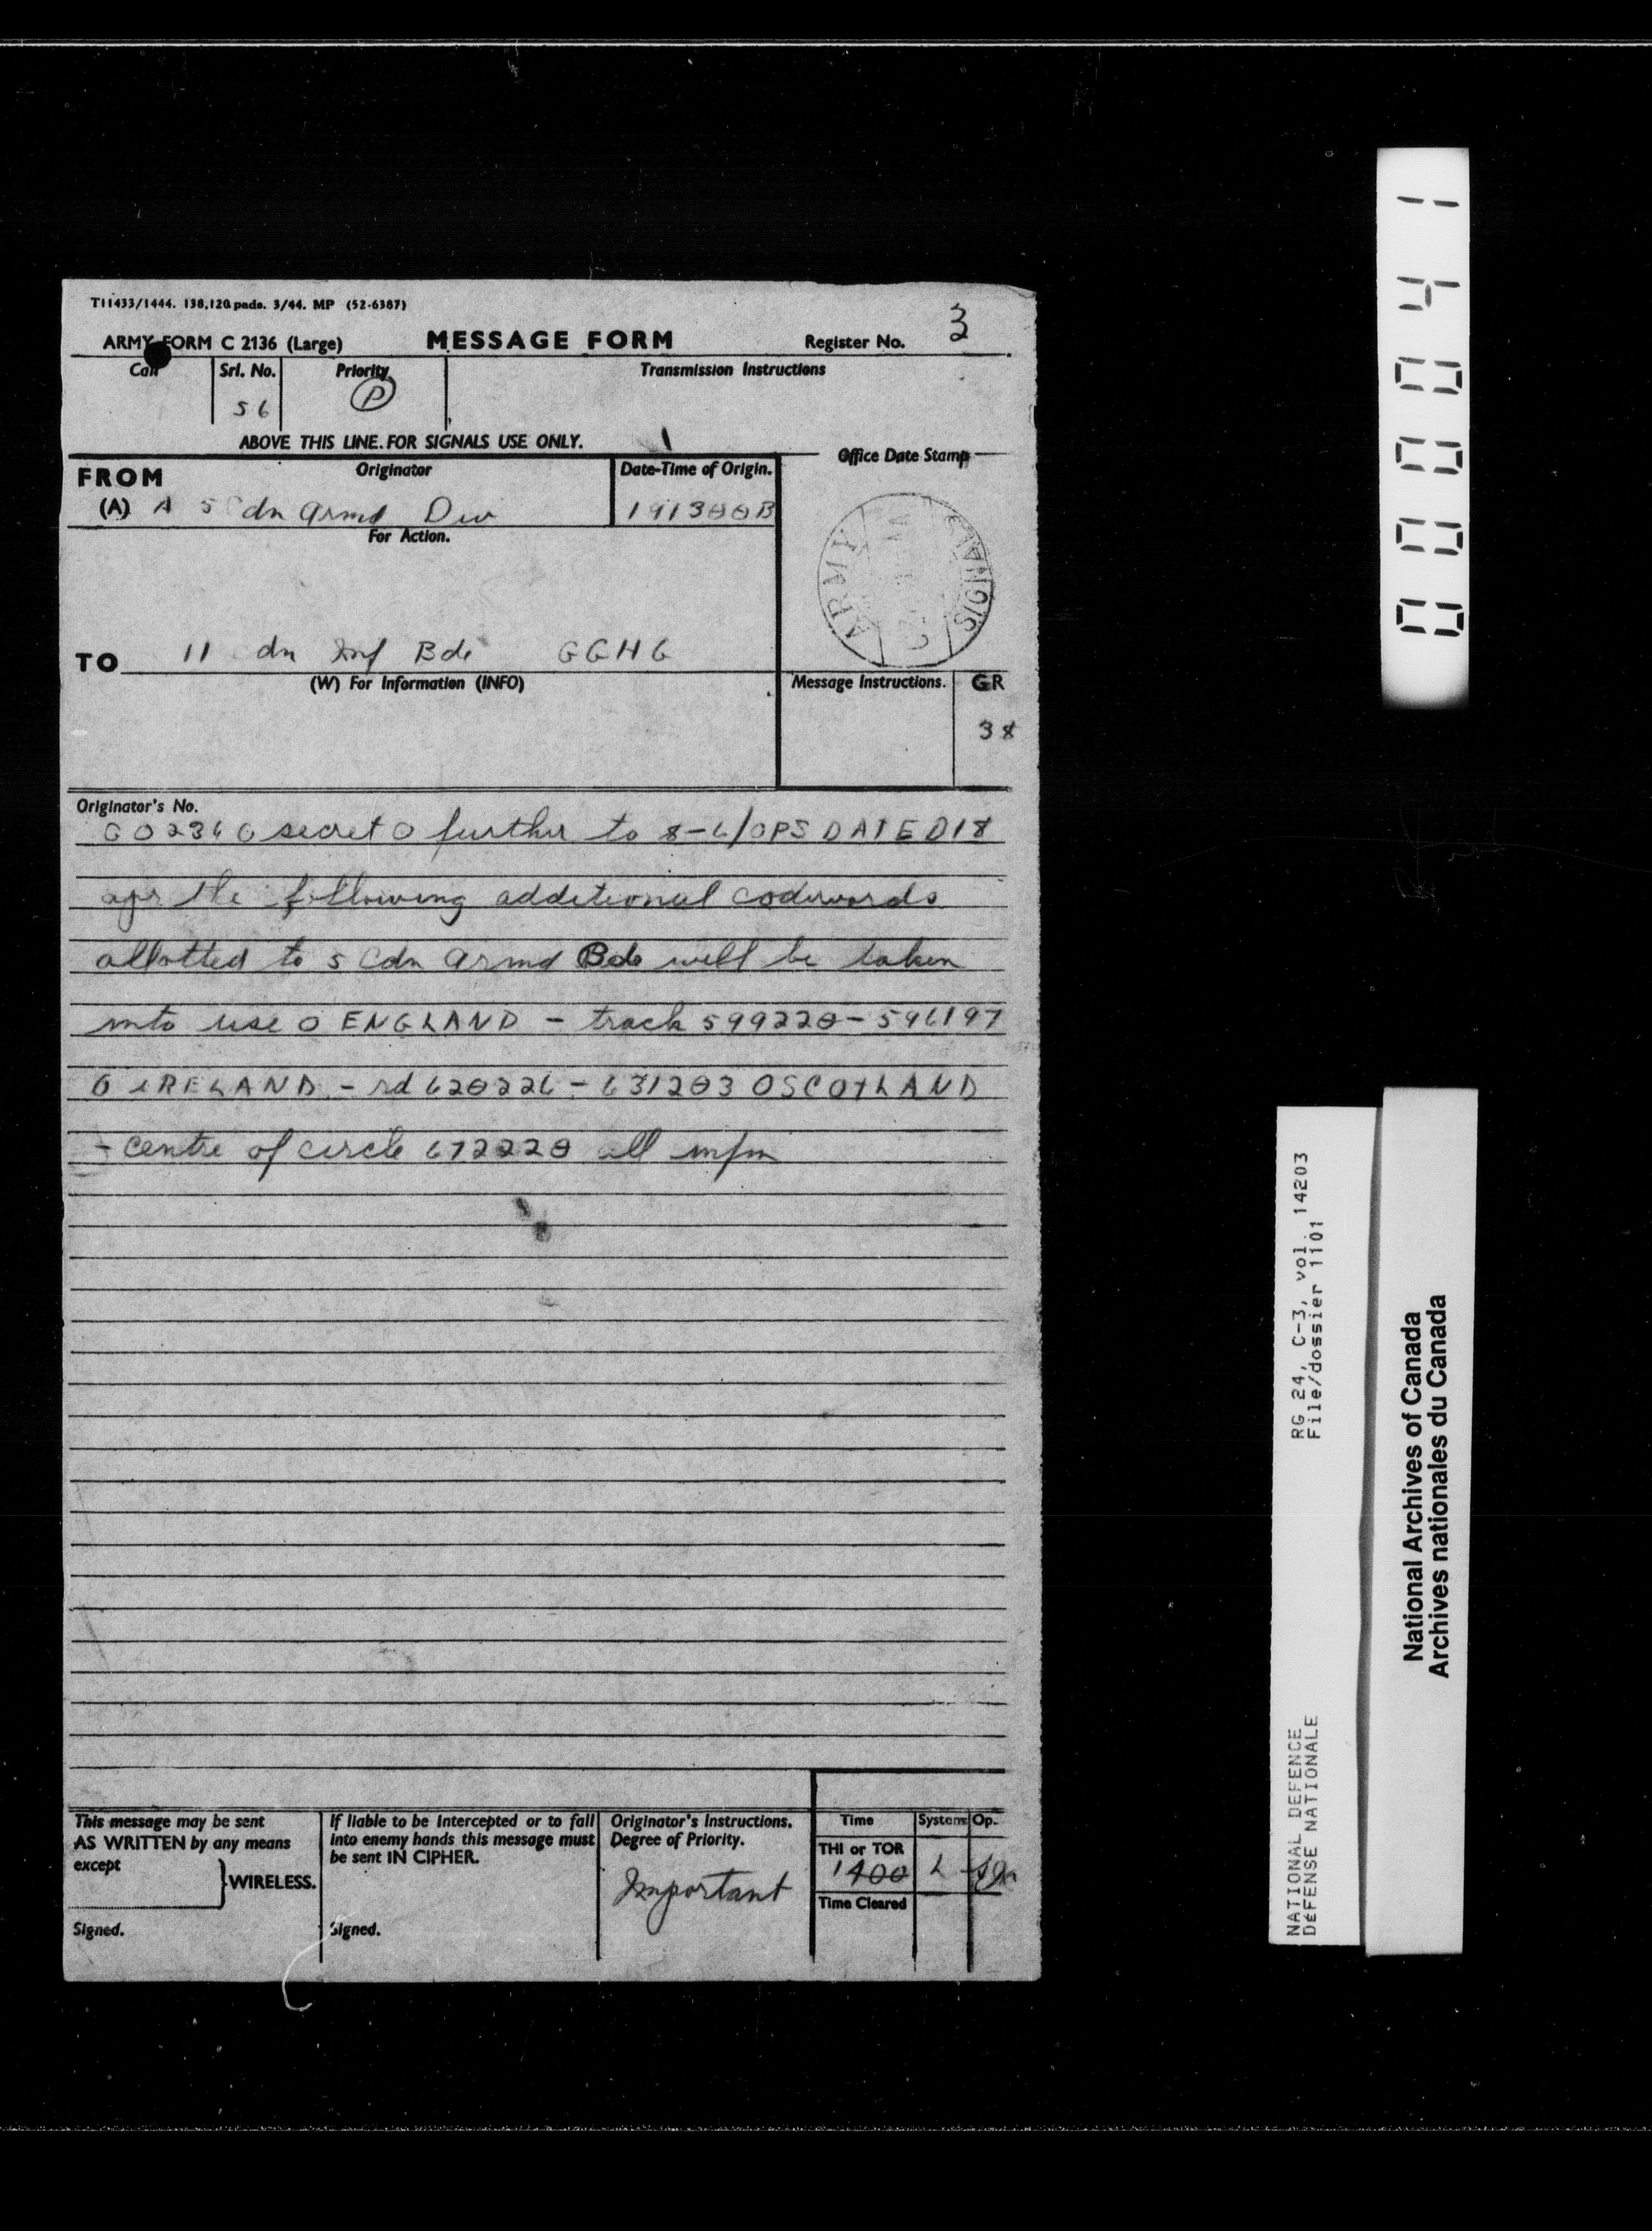 T11433/1444. 138,120 pads. 3/44. MP (52-6387)
ARMY FORM C 2136 (Large) MESSAGE FORM Register No. 3
Call Srl. No. Priority Transmission Instructions
56 P
ABOVE THIS LINE FOR SIGNALS USE ONLY.
FROM Originator Date-Time of Origin. Office Date Stamp
(A) A 5 Cdn Armd Div 191300B
For Action.
ARMY SIGNALS
TO 11 Cdn Inf Bde GGHG
(W) For Information (INFO) Message Instructions. GR
38
Originator's No.
GO234 O secret O further to 8-6/OPS DATED 18
apr the following additional codewords
allotted to 5 Cdn Armd Bde will be taken
into use O ENGLAND - track 599220 - 596197
O IRELAND - rd 620226 - 631203 O SCOTLAND
- centre of circle 672220 all infm
This message may be sent AS WRITTEN by any means except } WIRELESS.
Signed.
If liable to be intercepted or to fall into enemy hands this message must be sent IN CIPHER.
Signed.
Originator's Instructions. Degree of Priority.
Important
Time System Op.
THI or TOR
1400 L
Time Cleared
000041
RG 24, C-3, vol. 14203
File/dossier 1101
NATIONAL DEFENCE
DÉFENSE NATIONALE
National Archives of Canada
Archives nationales du Canada